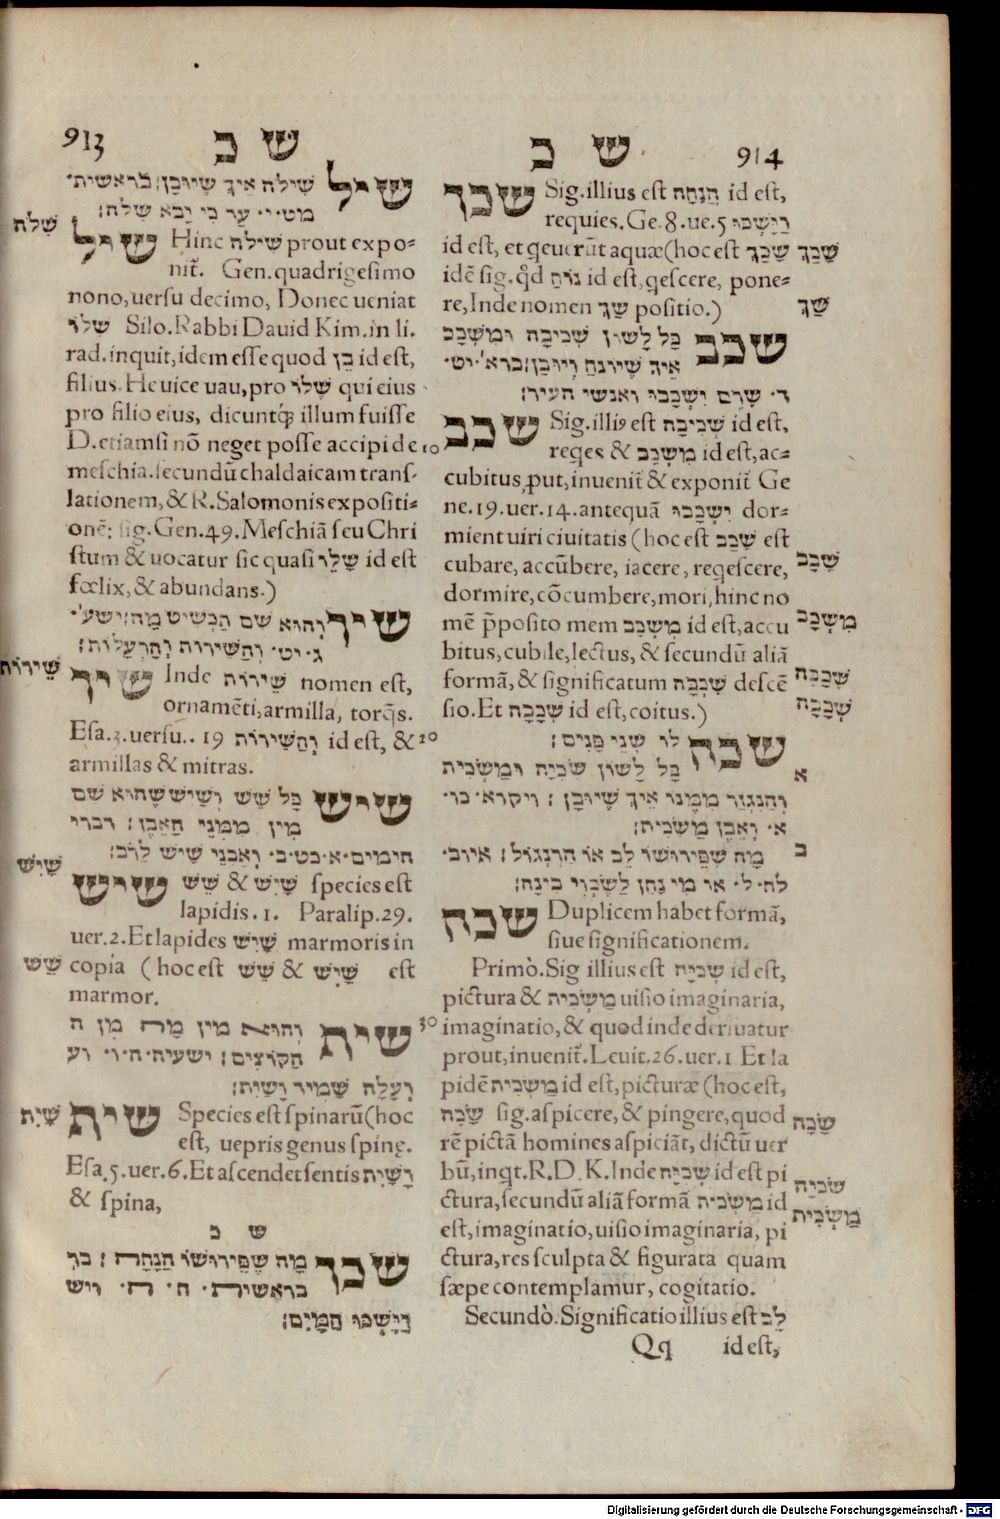 913
ש כ
שיל שילה איך שיוכן׃ בראשית
מט׳ י׳ עד כי יבא שילה׃
שלה
שיל Hinc שילה prout expo=
nit̃. Gen. quadrigesimo
nono, uersu decimo, Donec ueniat
שלו Silo. Rabbi Dauid Kim. in li.
rad. inquit, idem esse quod בן id est,
filius. He uice uau, pro שלו qui eius
pro filio eius, dicuntq; illum fuisse
D. etiamsi nõ neget posse accipi de
meschia. secundũ chaldaicam trans-
lationem, & R. Salomonis expositi=
onẽ: sig. Gen. 49. Meschiã seu Chri
stum & uocatur sic quasi שלו id est
fœlix, & abundans.)
שיר והוא שם תכשיט מה׃ ישע׳
ג׳ יט׳ והשירות והרעלות׃
שירות
שיר Inde שירות nomen est,
ornamẽti, armilla, torq̃s.
Esa. 3. uersu.. 19 והשירות id est, &
armillas & mitras.
שיש כל שש ושיש שהוא שם
מין ממיני האבן׃ דברי
הימים׳ א׳ כט׳ ב׳ ואבני שיש לרב׃
שיש
שיש שיש & שש species est
lapidis. 1. Paralip. 29.
uer. 2. Et lapides שיש marmoris in
שש
copia (hoc est שש & שיש est
marmor.
שית והוא מין מה מן ה
הקוצים׃ ישעיה׳ ה׳ ו׳ וע
ועלה שמיר ושית׃
שית
שית Species est spinarũ (hoc
est, uepris genus spinę.
Esa. 5. uer. 6. Et ascendet sentis ושית
& spina,
ש כ
שכך מה שפירושו הנחה׃ כך
בראשית׳ ח׳ ה׳ ויש
וישכו המים׃
914
ש כ
שכך Sig. illius est הנחה id est,
requies. Ge. 8. ue. 5 וישכו
id est, et q̃euerũt aquæ (hoc est שכך
שכך
idẽ sig. q̃d נוח id est, q̃escere, pone=
re, Inde nomen שך positio.)
שך
שכב כל לשון שכיבה ומשכב
איך שיונח ויוכן׃ ברא׳ יט׳
ד׳ טרם ישכבו ואנשי העיר׃
10
שכב Sig. illi⁹ est שכיבה id est,
req̃es & משכב id est, ac=
cubitus, put, inuenit̃ & exponit̃ Ge
ne. 19. uer. 14. antequã ישכבו dor=
mient uiri ciuitatis (hoc est שכב est
שכב
cubare, accũbere, iacere, req̃escere,
dormire, cõcumbere, mori, hinc no
mẽ p̃posito mem משכב id est, accu
משכב
bitus, cubile, lectus, & secundũ aliã
formã, & significatum שכבה descẽ
שכבה
sio. Et שכבה id est, coitus.)
שכבה
20
שכה לו שני פנים׃
כל לשון שכיה ומשכית
א
והנגזר ממנו איך שיוכן׃ ויקרא׳ כו׳
א׳ ואבן משכית׃
ב
מה שפירושו לב או תרנגול׃ איוב׳
לח׳ ל׳ או מי נתן לשכוי בינה׃
שכה Duplicem habet formã,
siue significationem.
Primò. Sig illius est שכיה id est,
pictura & משכית uisio imaginaria,
30
imaginatio, & quod inde deriuatur
prout, inuenit̃. Leuit. 26. uer. 1 Et la
pidẽ משכית id est, picturæ (hoc est,
שכה sig. aspicere, & pingere, quod
שכה
rẽ pictã homines aspiciãt, dictũ uer
bũ, inq̃t. R. D. K. Inde שכיה id est pi
שכיה
ctura, secundũ aliã formã משכית id
משכית
est, imaginatio, uisio imaginaria, pi
ctura, res sculpta & figurata quam
sæpe contemplamur, cogitatio.
Secundò. Significatio illius est לב
Qq id est,
Digitalisierung gefördert durch die Deutsche Forschungsgemeinschaft - DFG